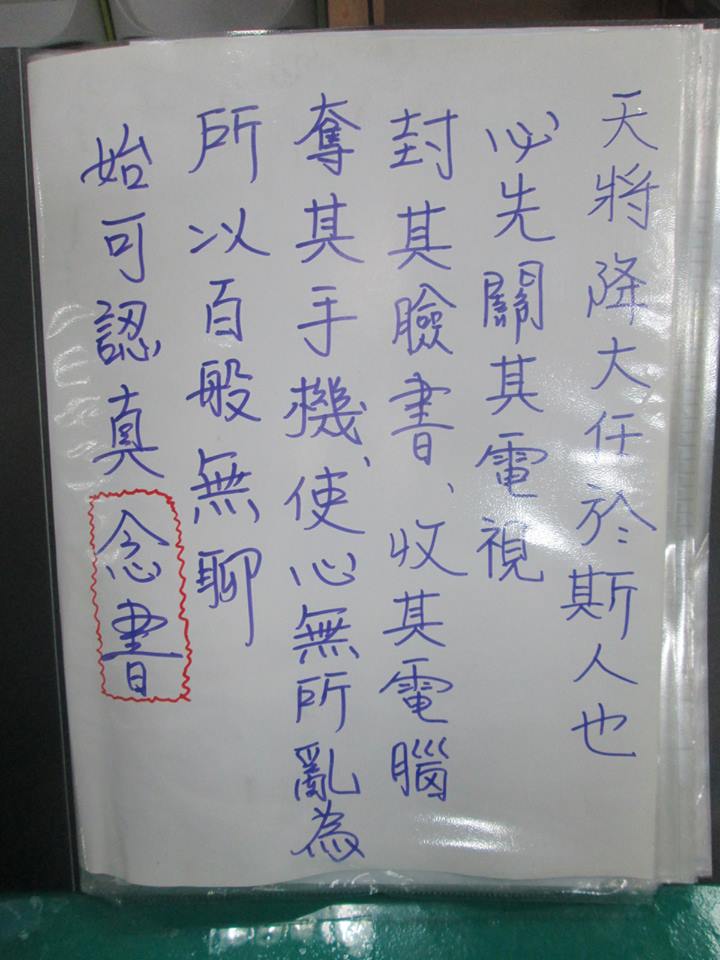 天將降大任於斯人也
必先關其電視
封其臉書、收其電腦
奪其手機、使心無所亂為
所以百般無聊
始可認真念書